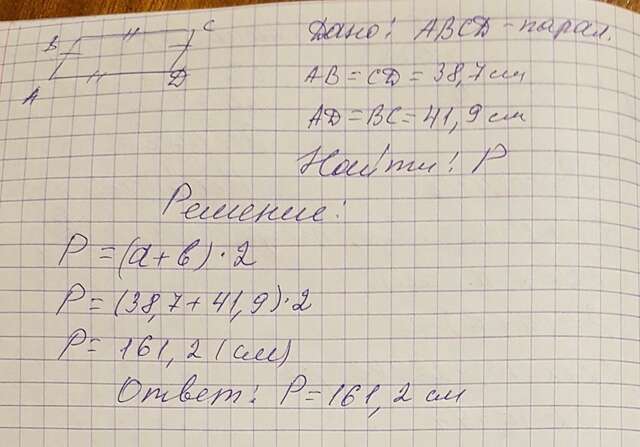 B C
A D
Дано: ABCD - парал.
AB = CD = 38,7 см
AD = BC = 41,9 см
Найти: P
Решение:
P = (a + b) · 2
P = (38,7 + 41,9) · 2
P = 161,2 (см)
Ответ: P = 161,2 см